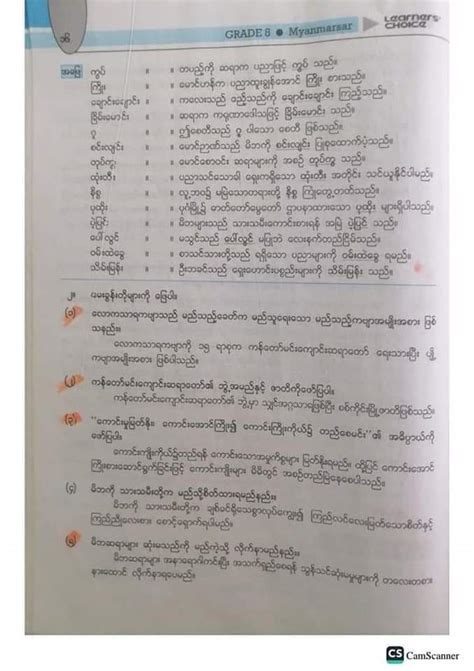 ၁၆ GRADE 8 ● Myanmarsar Learners' CHOICE
အဖြေ ကွပ် ။ ။ တပည့်ကို ဆရာက ပညာဖြင့် ကွပ် သည်။
ကြိုး ။ ။ မောင်ဟန်က ပညာထူးချွန်အောင် ကြိုး စားသည်။
ချောင်းချောင်း ။ ။ ကလေးသည် ဧည့်သည်ကို ချောင်းချောင်း ကြည့်သည်။
ခြိမ်းမောင်း ။ ။ ဆရာက ကရုဏာဒေါသဖြင့် ခြိမ်းမောင်း သည်။
ဌ ။ ။ ဤစေတီသည် ဌ ပါသော စေတီ ဖြစ်သည်။
စင်းလျင်း ။ ။ မောင်ဉာဏ်သည် မိဘကို စင်းလျင်း ပြုစုထောက်ပံ့သည်။
တုပ်ကွ ။ ။ မောင်စောဝင်း ဆရာများကို အစဉ် တုပ်ကွ သည်။
ထုံးတီး ။ ။ ပညာသင်သောခါ ရှေးကရှိသော ထုံးတီး အတိုင်း သင်ယူနိုင်ပါမည်။
နိစ္စ ။ ။ လူ့ဘဝ၌ မမြဲသောတရားကို နိစ္စ ကြုံတွေ့တတ်သည်။
ပုထိုး ။ ။ ပုဂံမြို့၌ ဓာတ်တော်မွေတော် ဌာပနာထားသော ပုထိုး များရှိပါသည်။
ပဲ့ပြင် ။ ။ မိဘများသည် သားသမီးကောင်းစားရန် အမြဲ ပဲ့ပြင် သည်။
ပေါ်လွင် ။ ။ မသွင်သည် ပေါ်လွင် မပြုဘဲ လေးနက်တည်ငြိမ်သည်။
ဝမ်းထဲခွေ ။ ။ စာသင်သားတို့သည် ရရှိသော ပညာများကို ဝမ်းထဲခွေ ရမည်။
သိမ်းမြန်း ။ ။ ဦးဘခင်သည် ရှေးဟောင်းပစ္စည်းများကို သိမ်းမြန်း သည်။
၂။ မေးခွန်းတို့များကို ဖြေပါ။
(၁) လောကသာရကဗျာသည် မည်သည့်ခေတ်က မည်သူရေးသော မည်သည့်ကဗျာအမျိုးအစား ဖြစ်
သနည်း။
လောကသာရကဗျာကို ၁၅ ရာစုက ကန်တော်မင်းကျောင်းဆရာတော် ရေးသားပြီး ပျို့
ကဗျာအမျိုးအစား ဖြစ်ပါသည်။
(၂) ကန်တော်မင်းကျောင်းဆရာတော်၏ ဘွဲ့အမည်နှင့် ဇာတိကိုဖော်ပြပါ။
ကန်တော်မင်းကျောင်းဆရာတော်၏ ဘွဲ့မှာ သျှင်အဂ္ဂသာရဖြစ်ပြီး စစ်ကိုင်းမြို့ဇာတိဖြစ်သည်။
(၃) "ကောင်းမှုမြတ်နိုး၊ ကောင်းအောင်ကြိုး၍ ကောင်းကြိုးကိုယ်၌ တည်စေမင်း"၏ အဓိပ္ပာယ်ကို
ဖော်ပြပါ။
ကောင်းကျိုးကိုယ်၌တည်ရန် ကောင်းသောအမှုကိစ္စများ မြတ်နိုးရမည်။ ထို့ပြင် ကောင်းအောင်
ကြိုးစားအောင်ရွက်ခြင်းဖြင့် ကောင်းကျိုးများ မိမိတွင် အစဉ်တည်မြဲနေစေပါသည်။
(၄) မိဘကို သားသမီးတို့က မည်သို့စိတ်ထားရမည်နည်း။
မိဘကို သားသမီးတို့က ချစ်ခင်ရှိသေစွာလုပ်ကျွေး၍ ကြည်လင်လေးမြတ်သောစိတ်နှင့်
ကြည်ညိုလေးစား စောင့်ရှောက်ရပါမည်။
မိဘဆရာများ ဆုံးမသည်ကို မည်ကဲ့သို့ လိုက်နာမည်နည်း။
မိဘဆရာများ အနာရောဂါကင်းပြီး အသက်ရှည်စေရန် သွန်သင်ဆုံးမမှုများကို တလေးတစား
နားထောင် လိုက်နာရပေမည်။
CS CamScanner